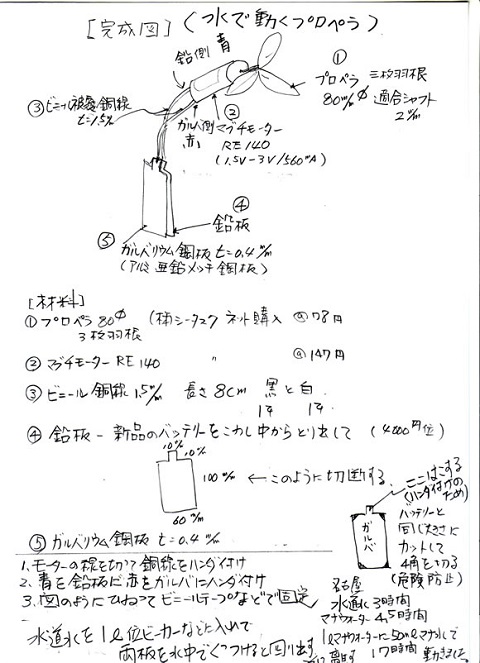 [完成図] (水で動くプロペラ)
鉛側 青
①
プロペラ 三枚羽根
80m/mφ 適合シャフト
2m/m
③ビニール被覆銅線
t=1.5m/m
ガルバ側
赤
②
マブチモーター
RE140
(1.5V-3V/560mA)
④
鉛板
⑤
ガルバリウム鋼板 t=0.4m/m
(アルミ亜鉛メッキ鋼板)
[材料]
① プロペラ 80φ (株)シータスク ネット購入 @78円
3枚羽根
② マブチモーター RE140 〃 @147円
③ ビニール銅線 1.5m/m 長さ8cm 黒と白
1本 1本
④ 鉛板 - 新品のバッテリーをこわし中からとり出して (4000円位)
10m/m
10m/m
100m/m
60m/m
←このように切断する
ここはこする
(ハンダ付けのため)
ガルバ
バッテリーと
同じ大きさに
カットして
4角を切る
(危険防止)
⑤ ガルバリウム鋼板 t=0.4m/m
1、モーターの線を切って銅線をハンダ付け
2、青を鉛板に赤をガルバにハンダ付け
3、図のようにひねってビニールテープなどで固定
水道水を1ℓ位ビーカーなどに入れて
両板を水中でくっつけると回り出す
離す
名古屋
水道水 3時間
マナウォーター 4,5時間
17時間 動きました